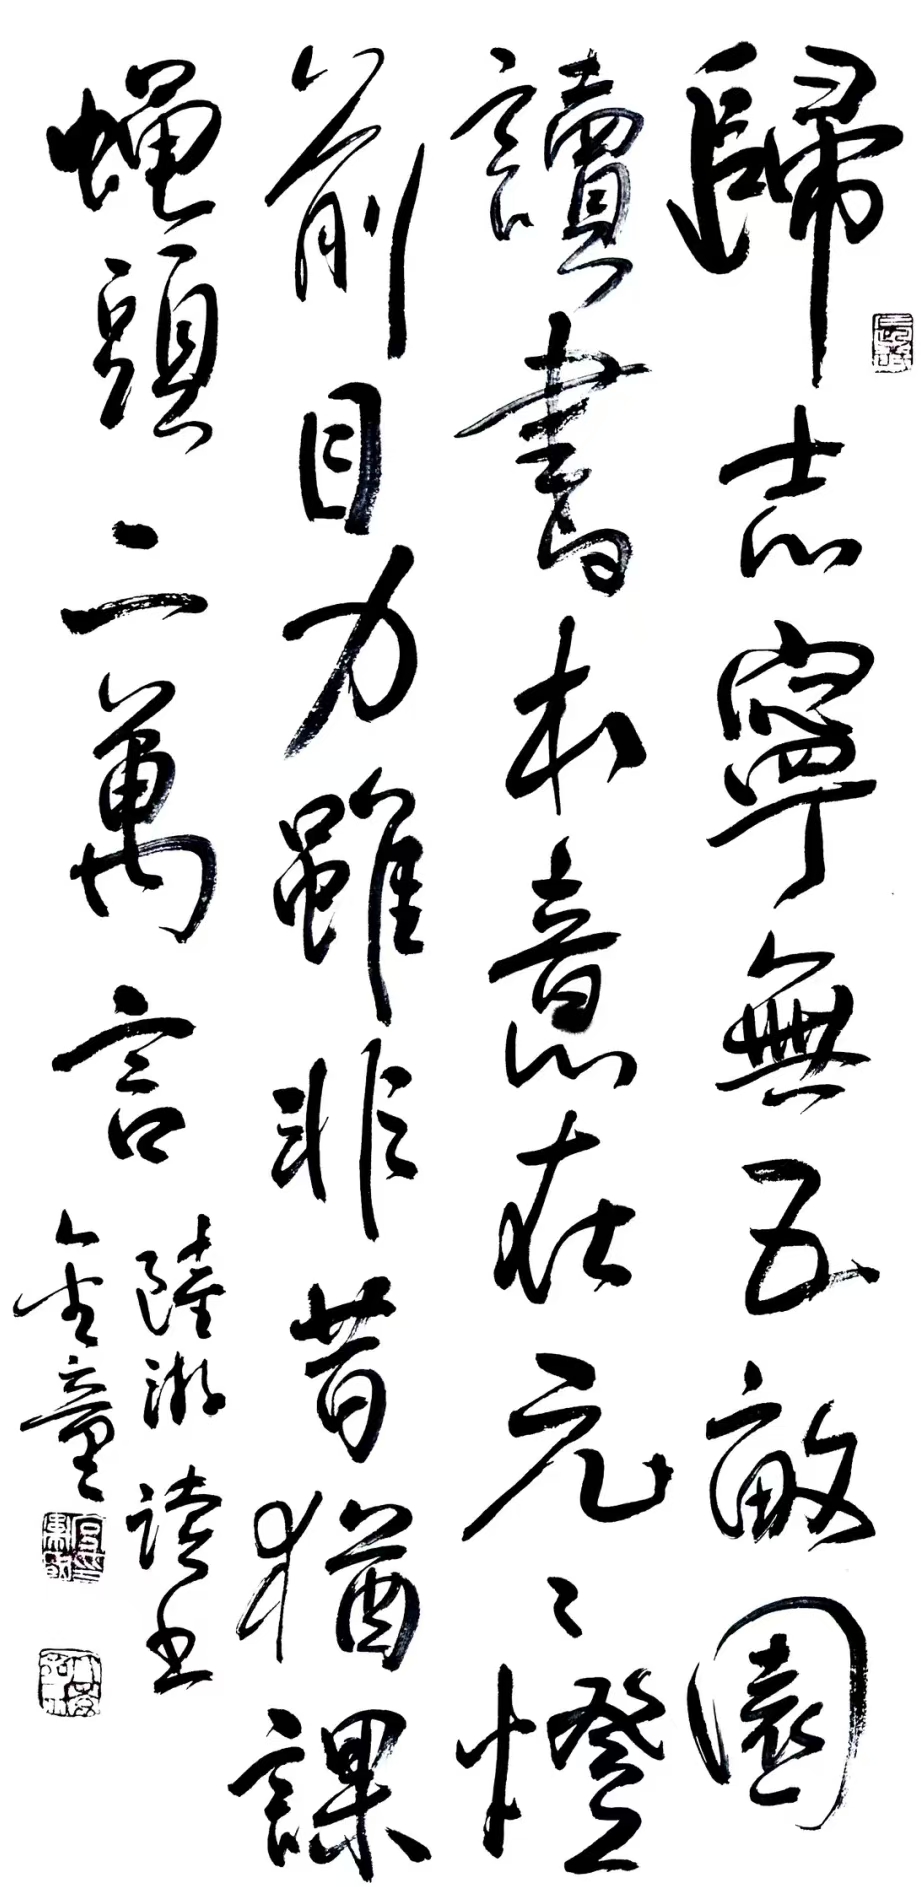 歸志寧無五畝園
讀書本意在元〻燈
前目力雖非昔猶課
蝇頭二萬言
陸游读书
金童